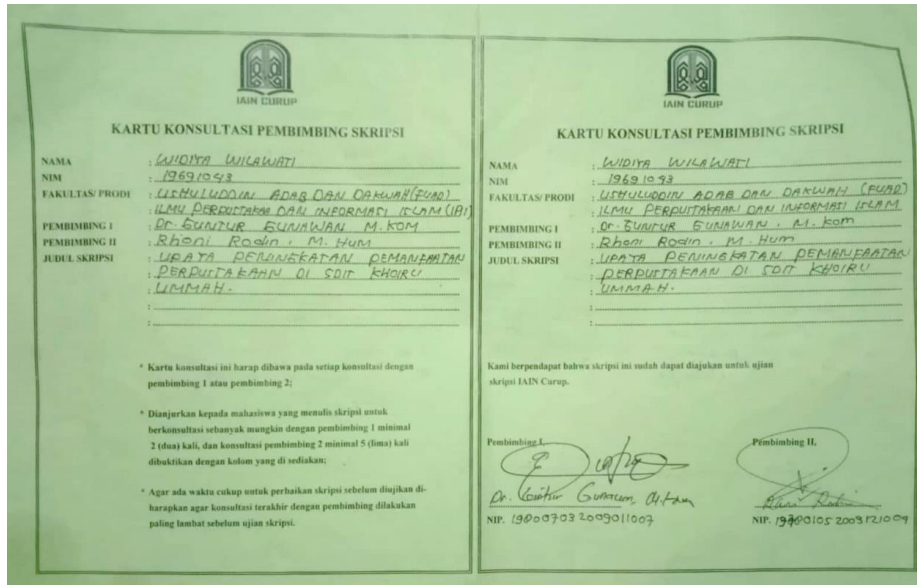 IAIN CURUP
KARTU KONSULTASI PEMBIMBING SKRIPSI
NAMA : WIDIYA WILAWATI
NIM : 19691043
FAKULTAS/ PRODI : USHULUDDIN ADAB DAN DAKWAH (FUAD)
: ILMU PERPUSTAKAA DAN INFORMASI ISLAM (IPI)
PEMBIMBING I : Dr. GUNTUR GUNAWAN M. KOM
PEMBIMBING II : Rhoni Rodin, M. Hum
JUDUL SKRIPSI : UPAYA PENINGKATAN PEMANFAATAN
: PERPUSTAKAAN DI SDIT KHOIRU
: UMMAH.
:
:
* Kartu konsultasi ini harap dibawa pada setiap konsultasi dengan
pembimbing 1 atau pembimbing 2;
* Dianjurkan kepada mahasiswa yang menulis skripsi untuk
berkonsultasi sebanyak mungkin dengan pembimbing 1 minimal
2 (dua) kali, dan konsultasi pembimbing 2 minimal 5 (lima) kali
dibuktikan dengan kolom yang di sediakan;
* Agar ada waktu cukup untuk perbaikan skripsi sebelum diujikan di-
harapkan agar konsultasi terakhir dengan pembimbing dilakukan
paling lambat sebelum ujian skripsi.
IAIN CURUP
KARTU KONSULTASI PEMBIMBING SKRIPSI
NAMA : WIDIYA WILAWATI
NIM : 19691043
FAKULTAS/ PRODI : USHULUDDIN ADAB DAN DAKWAH (FUAD)
: ILMU PERPUSTAKAAN DAN INFORMASI ISLAM
PEMBIMBING I : Dr. GUNTUR GUNAWAN, M. Kom
PEMBIMBING II : Rhoni Rodin, M. Hum
JUDUL SKRIPSI : UPAYA PENINGKATAN PEMANFAATAN
: PERPUSTAKAAN DI SDIT KHOIRU
: UMMAH.
:
:
Kami berpendapat bahwa skripsi ini sudah dapat diajukan untuk ujian
skripsi IAIN Curup.
Pembimbing I,
Dr. Guntur Gunawan
NIP. 198007032009011007
Pembimbing II,
NIP.